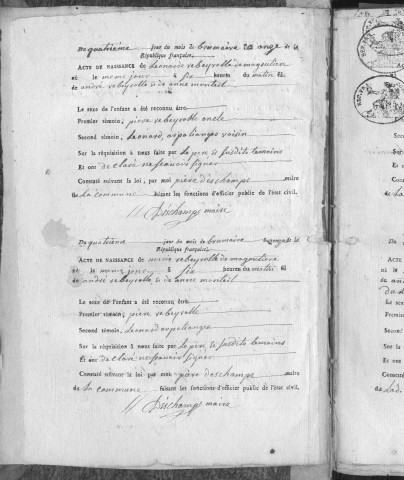 Du quatrieme jour du mois de brumaire l'an onze de la
République française.
ACTE DE NAISSANCE de Leonard rebeyrolle de magoutiere
né le meme jour à six heures du matin fil
de andré rebeyrolle & de anne monteil
Le sexe de l'enfant a été reconnu être
Premier témoin, piere rebeyrolle oncle
Second témoin, Leonard arpaliange voisin
Sur la réquisition à nous faite par Le pere & susdits temoins
Et ont declaré ne savoir signer
Constaté suivant la loi, par moi piere deschamps maire
de La commune faisant les fonctions d'officier public de l'état civil.
Deschamps maire
Du quatrieme jour du mois de brumaire
République française.
ACTE DE NAISSANCE de rebeyrolle de magoutiere
né le meme jour à six heures du matin fil
de andré rebeyrolle & de anne monteil
Le sexe de l'enfant a été reconnu être
Premier témoin, piere rebeyrolle
Second témoin, Leonard arpaliange
Sur la réquisition à nous faite par Le pere & susdits temoins
Et ont declaré ne savoir signer
Constaté suivant la loi par moi piere deschamps maire
de La commune faisant les fonctions d'officier public de l'état civil.
Deschamps maire